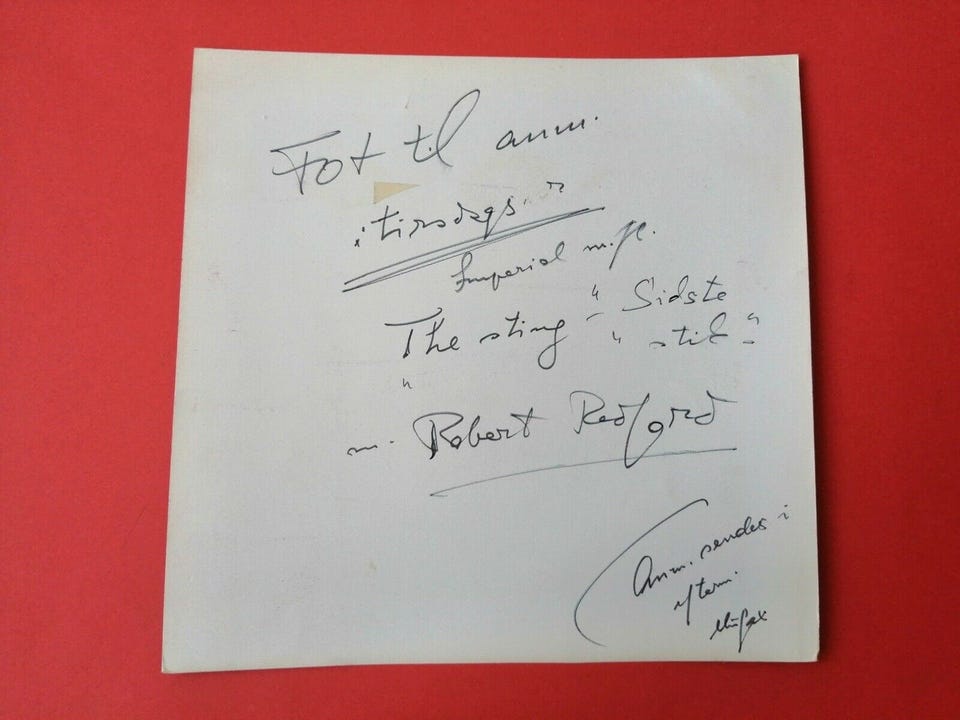 Fot til anm.
i tirsdags
Imperial m. fl.
The sting " Sidste
" stik "
"
m. Robert Redford
(Anm. sendes i
efterm.